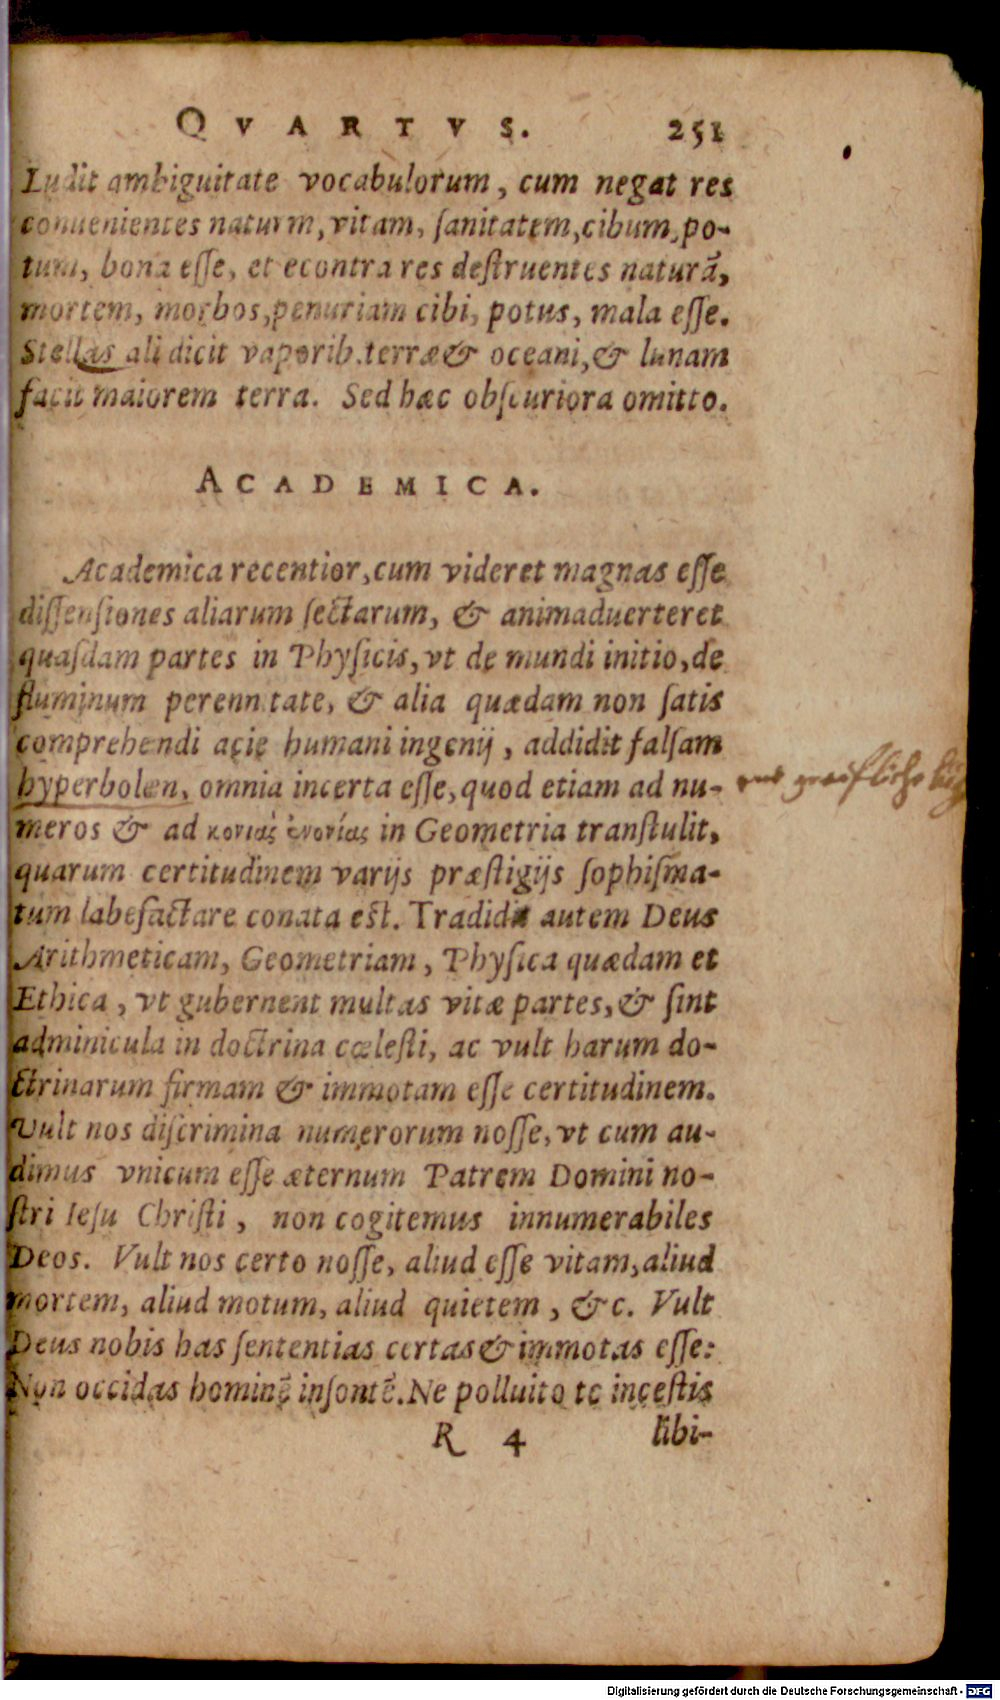 QVARTVS. 251
Ludit ambiguitate vocabulorum, cum negat res
conuenientes naturæ, vitam, ſanitatem, cibum, po-
tum, bona eſſe, et econtra res deſtruentes naturã,
mortem, morbos, penuriam cibi, potus, mala eſſe.
Stellas ali dicit vaporib. terræ & oceani, & lunam
facit maiorem terra. Sed hæc obſcuriora omitto.
ACADEMICA.
Academica recentior, cum videret magnas eſſe
diſſenſiones aliarum ſectarum, & animaduerteret
quaſdam partes in Phyſicis, vt de mundi initio, de
fluminum perennitate, & alia quædam non ſatis
comprehendi acie humani ingenij, addidit falſam
hyperbolen, omnia incerta eſſe, quod etiam ad nu-
meros & ad in Geometria tranſtulit,
quarum certitudinem varijs præſtigijs ſophiſma-
tum labefactare conata eſt. Tradidit autem Deus
Arithmeticam, Geometriam, Phyſica quædam et
Ethica, vt gubernent multas vitæ partes, & ſint
adminicula in doctrina cœleſti, ac vult harum do-
ctrinarum firmam & immotam eſſe certitudinem.
Vult nos diſcrimina numerorum noſſe, vt cum au-
dimus vnicum eſſe æternum Patrem Domini no-
ſtri Ieſu Chriſti, non cogitemus innumerabiles
Deos. Vult nos certo noſſe, aliud eſſe vitam, aliud
mortem, aliud motum, aliud quietem, &c. Vult
Deus nobis has ſententias certas & immotas eſſe:
Non occidas hominẽ inſontẽ. Ne polluito te inceſtis
R 4 libi-
Digitalisierung gefördert durch die Deutsche Forschungsgemeinschaft - DFG